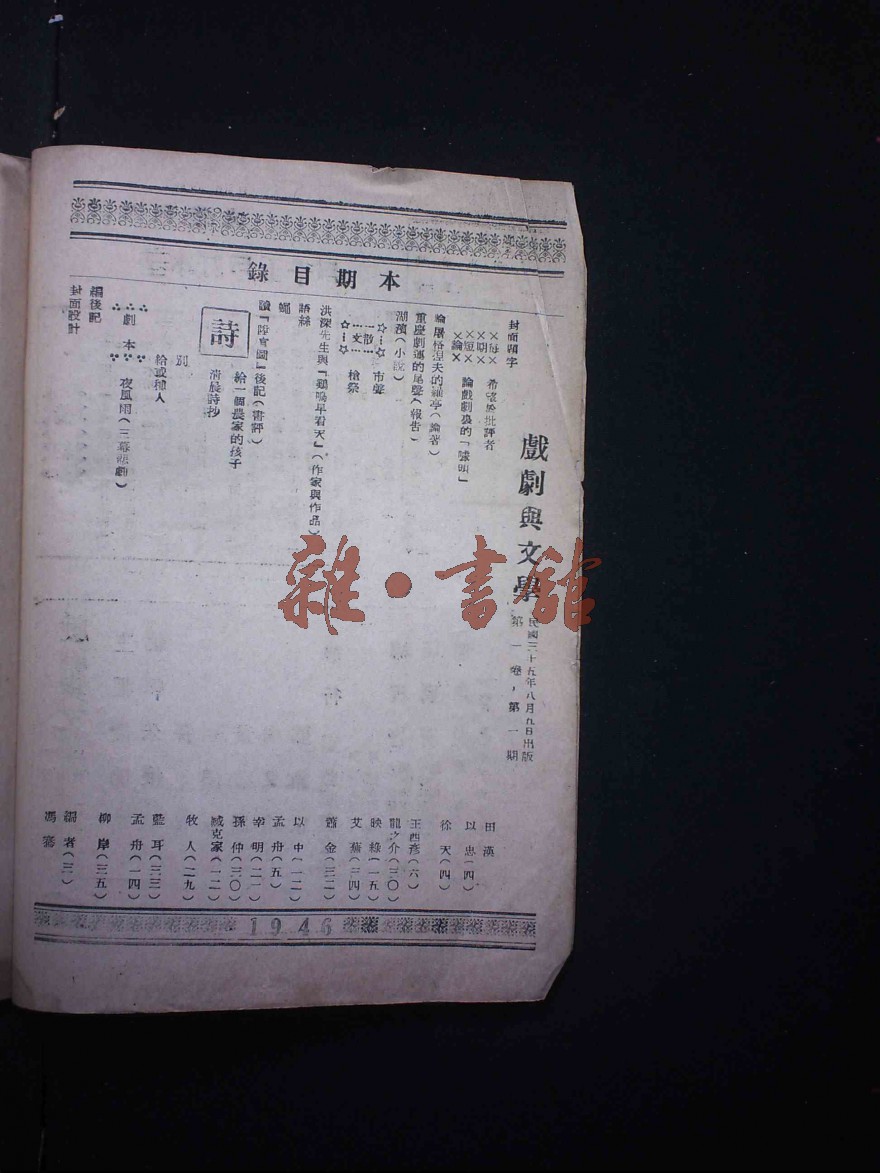 本期目錄
戲劇與文學
民國三十五年八月九日出版
第一卷，第一期
封面題字
田漢
每期短論
希望於批評者
以忠（四）
論戲劇裏的「噱頭」
徐天（四）
論屠格涅夫的羅亭（論著）
王西彥（六）
重慶劇運的尾聲（報告）
龍之介（三〇）
湖濱（小說）
映綠（一五）
散文
市聲
艾蕪（三四）
槍祭
蕭金（三二）
洪深先生與「鷄鳴早看天」（作家與作品）
以中（一二）
語絲
孟舟（五）
蠅
幸明（二一）
讀「陞官圖」後記（書評）
孫仲（三〇）
詩
給一個農家的孩子
臧克家（一二）
清晨詩抄
牧人（二九）
別
藍耳（三三）
給誠種人
孟舟（一四）
劇本
夜風雨（三幕悲劇）
柳岸（三五）
編後記
編者（三）
封面設計
馮騫
1946
雜·書館